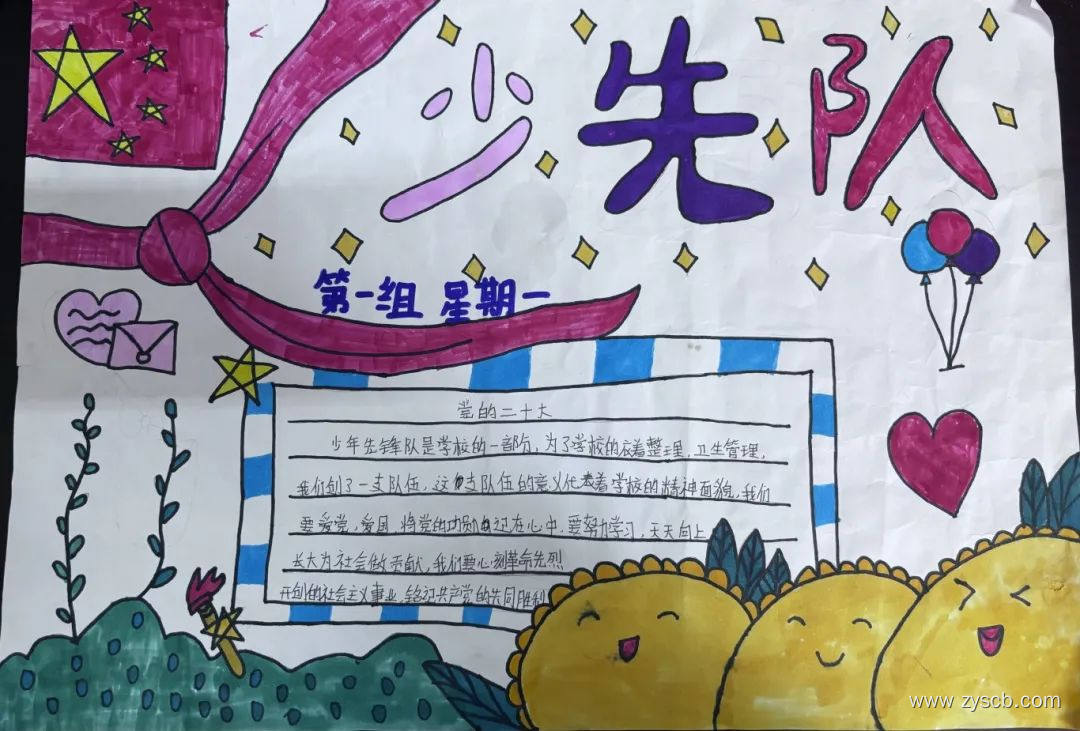 少先队
第一组 星期一
党的二十大
少年先锋队是学校的一部份,为了学校的衣着整理,卫生管理,
我们创了一支队伍,这支队伍的意义代表着学校的精神面貌,我们
要爱党,爱国,将党的功勋记在心中,要努力学习,天天向上
长大为社会做贡献,我们要心刻革命先烈
开创的社会主义事业,铭记共产党的共同胜利
www.zyscb.com